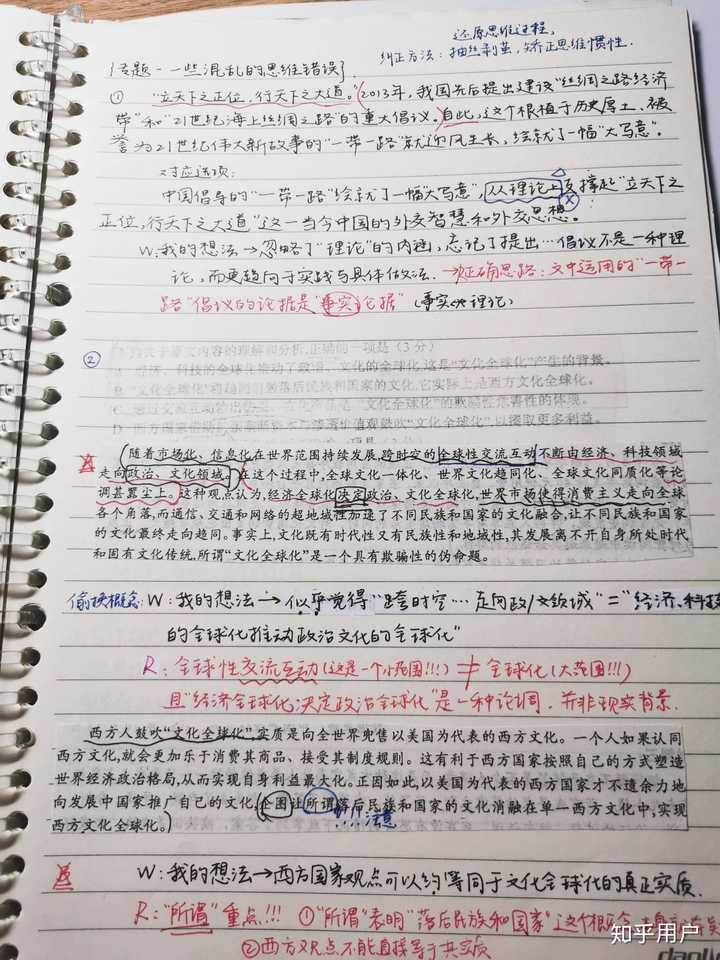 还原思维过程,
纠正方法: 抽丝剥茧, 矫正思维惯性.
{专题-一些混乱的思维错误}.
① “立天下之正位, 行天下之大道。”(2013年, 我国先后提出建设“丝绸之路经济
带”和“21世纪海上丝绸之路”的重大倡议。自此, 这个根植于历史厚土、被
誉为21世纪伟大新故事的“一带一路”就迎风生长, 绘就了一幅“大写意”。
对应选项:
中国倡导的“一带一路”绘就了一幅“大写意”, 从理论上支撑起“立天下之
正位, 行天下之大道”这一当今中国的外交智慧和外交思想。
W: 我的想法→忽略了“理论”的内涵, 忘记了提出…倡议不是一种理
论, 而更趋向于实践与具体做法. →正确思路: 文中运用的“一带一
路”倡议的论据是“事实论据” (事实≠理论)
②
关于原文内容的理解和分析,正确的一项是(3分)
经济、科技的全球化推动了政治、文化的全球化,这是“文化全球化”产生的背景。
B “文化全球化”
它实际上是西方文化全球化。
随着市场化、信息化在世界范围持续发展,跨时空的全球性交流互动不断由经济、科技领域
走向政治、文化领域。在这个过程中,全球文化一体化、世界文化趋同化、全球文化同质化等论
调甚嚣尘上。这种观点认为,经济全球化决定政治、文化全球化,世界市场使得消费主义走向全球
各个角落,而通信、交通和网络的超地域性加速了不同民族和国家的文化融合,让不同民族和国家
的文化最终走向趋同。事实上,文化既有时代性又有民族性和地域性,其发展离不开自身所处时代
和固有文化传统,所谓“文化全球化”是一个具有欺骗性的伪命题。
偷换概念: W: 我的想法→似乎觉得“跨时空…走向政/文领域”=“经济、科技
的全球化推动政治文化的全球化”
R: 全球性交流互动(这是一个小范围!!!) ≠ 全球化(大范围!!!)
且“经济全球化决定政治全球化”是一种论调, 并非现实背景.
西方人鼓吹“文化全球化”实质是向全世界兜售以美国为代表的西方文化。一个人如果认同
西方文化,就会更加乐于消费其商品、接受其制度规则。这有利于西方国家按照自己的方式塑造
世界经济政治格局,从而实现自身利益最大化。正因如此,以美国为代表的西方国家才不遗余力地
向发展中国家推广自己的文化,企图让所谓落后民族和国家的文化消融在单一西方文化中,实现
西方文化全球化。
注意
W: 我的想法→西方国家观点可以约等同于文化全球化的真正实质.
R: “所谓”重点!!! ①“所谓”表明“落后民族和国家”这个概念
②西方观点不能直接等于其实质
知乎用户